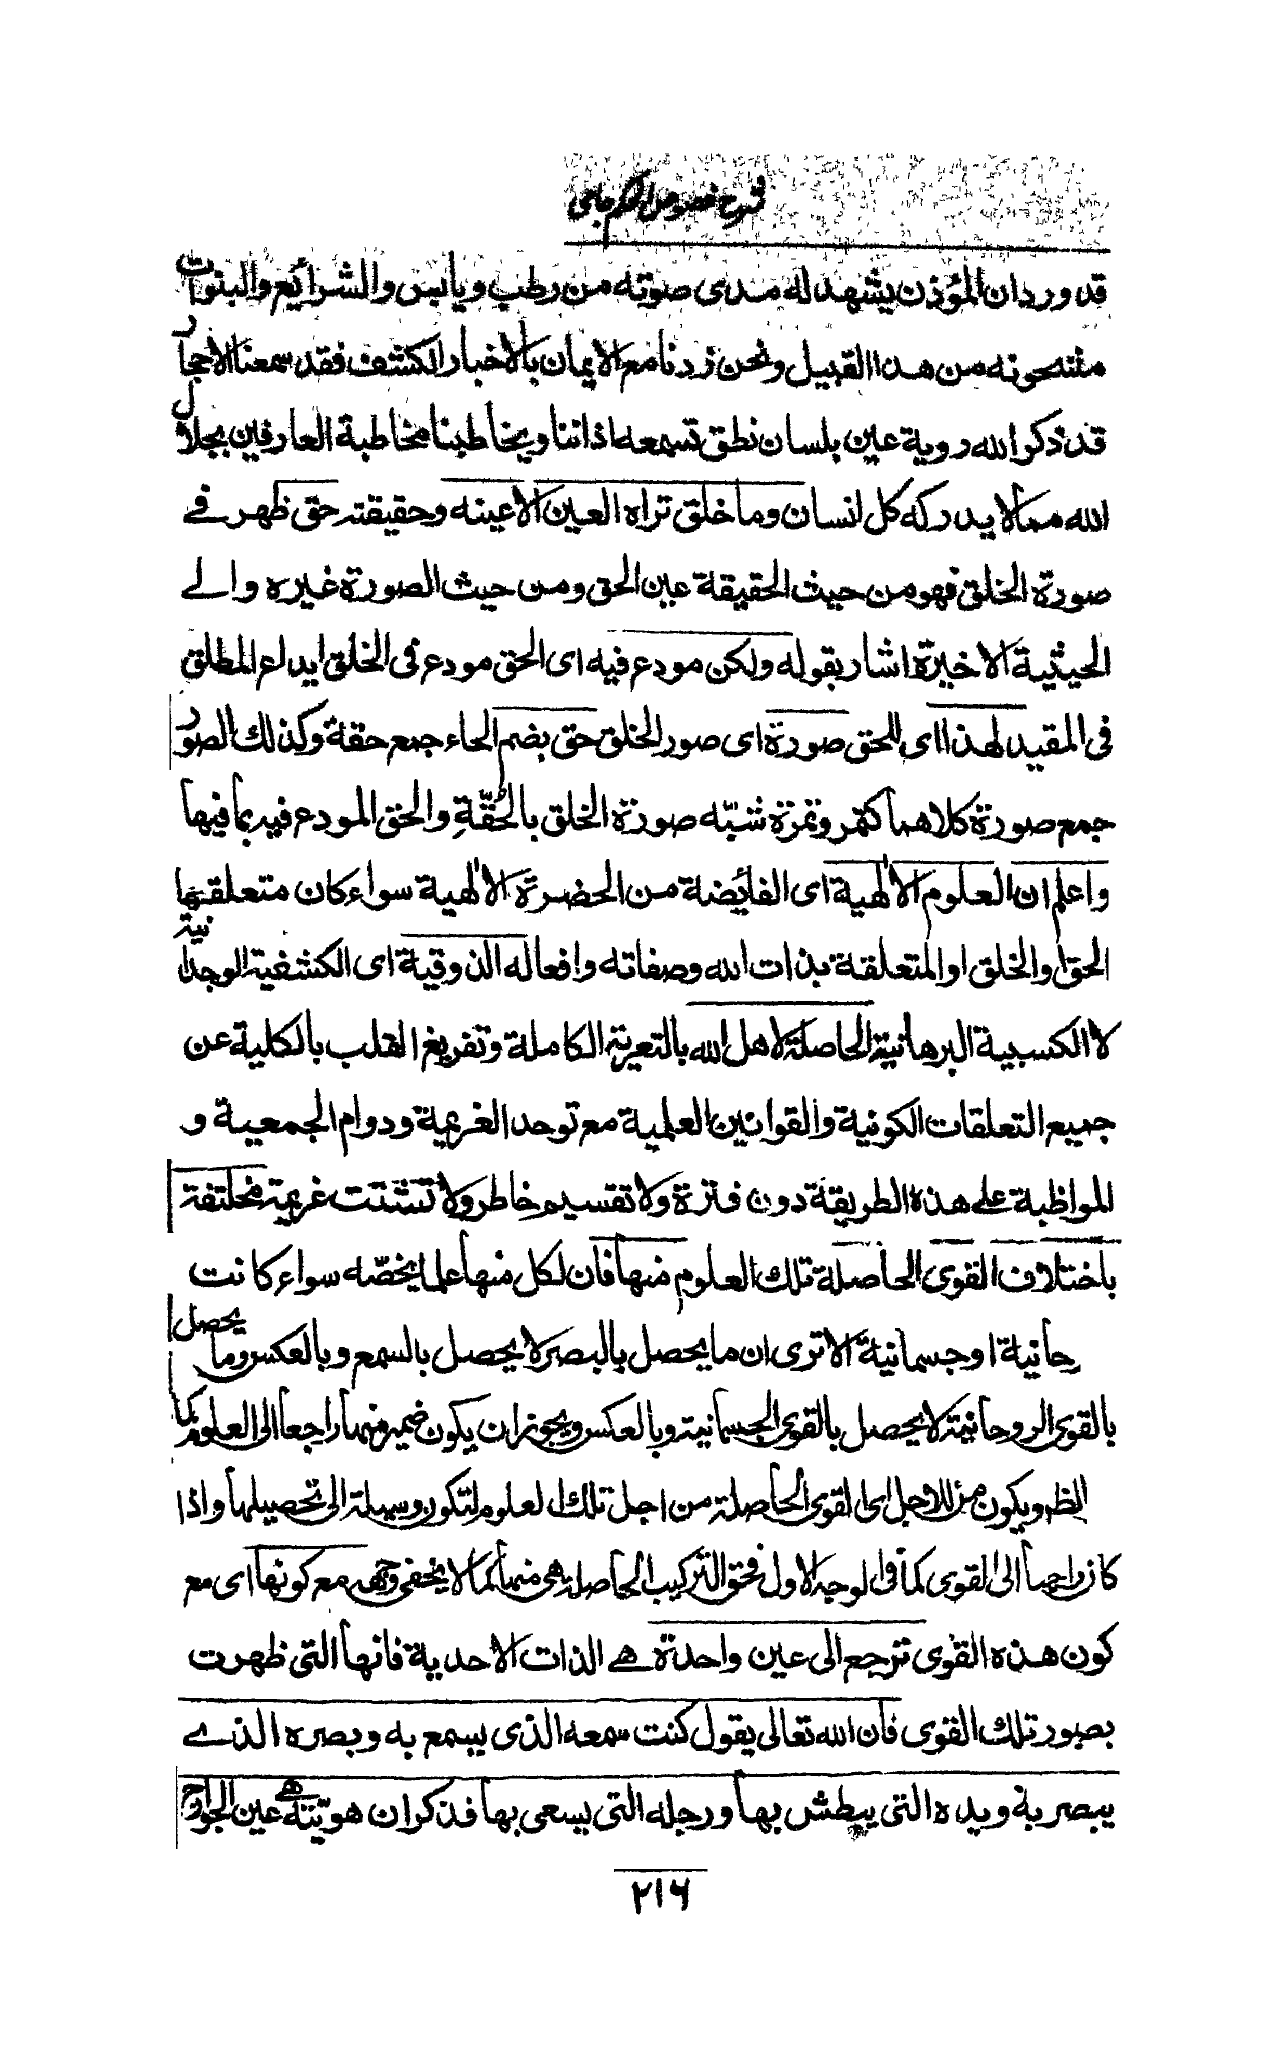 شرح فصوص الحكم جامی
قد ورد ان المؤذن يشهد له مدى صوته من رطب ويابس والشرائع والنبوات
مشحونة من هذا القبيل ونحن زدنا مع الايمان بالاخبار الكشف فقد سمعنا الاحجار
قد ذكر الله روية عين بلسان نطق تسمعه اذاننا ويخاطبنا مخاطبة العارفين بجلال
الله مما لا يدركه كل انسان وما خلق تراه العين الا عينه وحقيقته حق ظهر فے
صورة الخلق فهو من حيث الحقيقة عين الحق ومن حيث الصورة غيره والے
الحيثية الاخيرة اشار بقوله ولكن مودع فيه اى الحق مودع فى الخلق ايداع المطلق
فى المقيد لهذا اى للحق صورة اى صور الخلق حق بضم الحاء جمع حقة وكذلك الصور
جمع صورة كلاهما كتمر وتمرة شبّه صورة الخلق بالحُقّةِ والحق المودع فيه بما فيها
واعلم ان العلوم الالٰهية اى الفائضة من الحضرة الالٰهية سواء كان متعلقها
الحق او الخلق او المتعلقة بذات الله وصفاته وافعاله الذوقية اى الكشفية الوجدانية
لا الكسبية البرهانية الحاصلة لاهل الله بالتعرية الكاملة وتفريغ القلب بالكلية عن
جميع التعلقات الكونية والقوانين العلمية مع توحد العزيمة ودوام الجمعية و
المواظبة على هذه الطريقة دون فترة ولا تقسيم خاطر ولا تشتت عزيمة مختلفة
باختلاف القوى الحاصلة تلك العلوم منها فان لكل منها علما يخصّه سواء كانت
رحانية او جسمانية الا ترى ان ما يحصل بالبصر لا يحصل بالسمع وبالعكس وما يحصل
بالقوى الروحانية لا يحصل بالقوى الجسمانية وبالعكس ويجوز ان يكون ضمير منها راجعا الى العلوم كما
الظ ويكون من للاجل اى القوى الحاصلة من اجل تلك العلوم لتكون وسيلة الى تحصيلها واذا
كان راجعا الى القوى كما فى الوجه الاول فحق التركيب الحاصلة هى منها كما لا يخفى وجهه مع كونها اى مع
كون هذه القوى ترجع الى عين واحدة هے الذات الاحدية فانها التى ظهرت
بصور تلك القوى فان الله تعالى يقول كنت سمعه الذى يسمع به وبصره الذے
يبصر به ويده التى يبطش بها ورجله التى يسعى بها فذكر ان هويّته هے عين الجوارح
۲۱۶